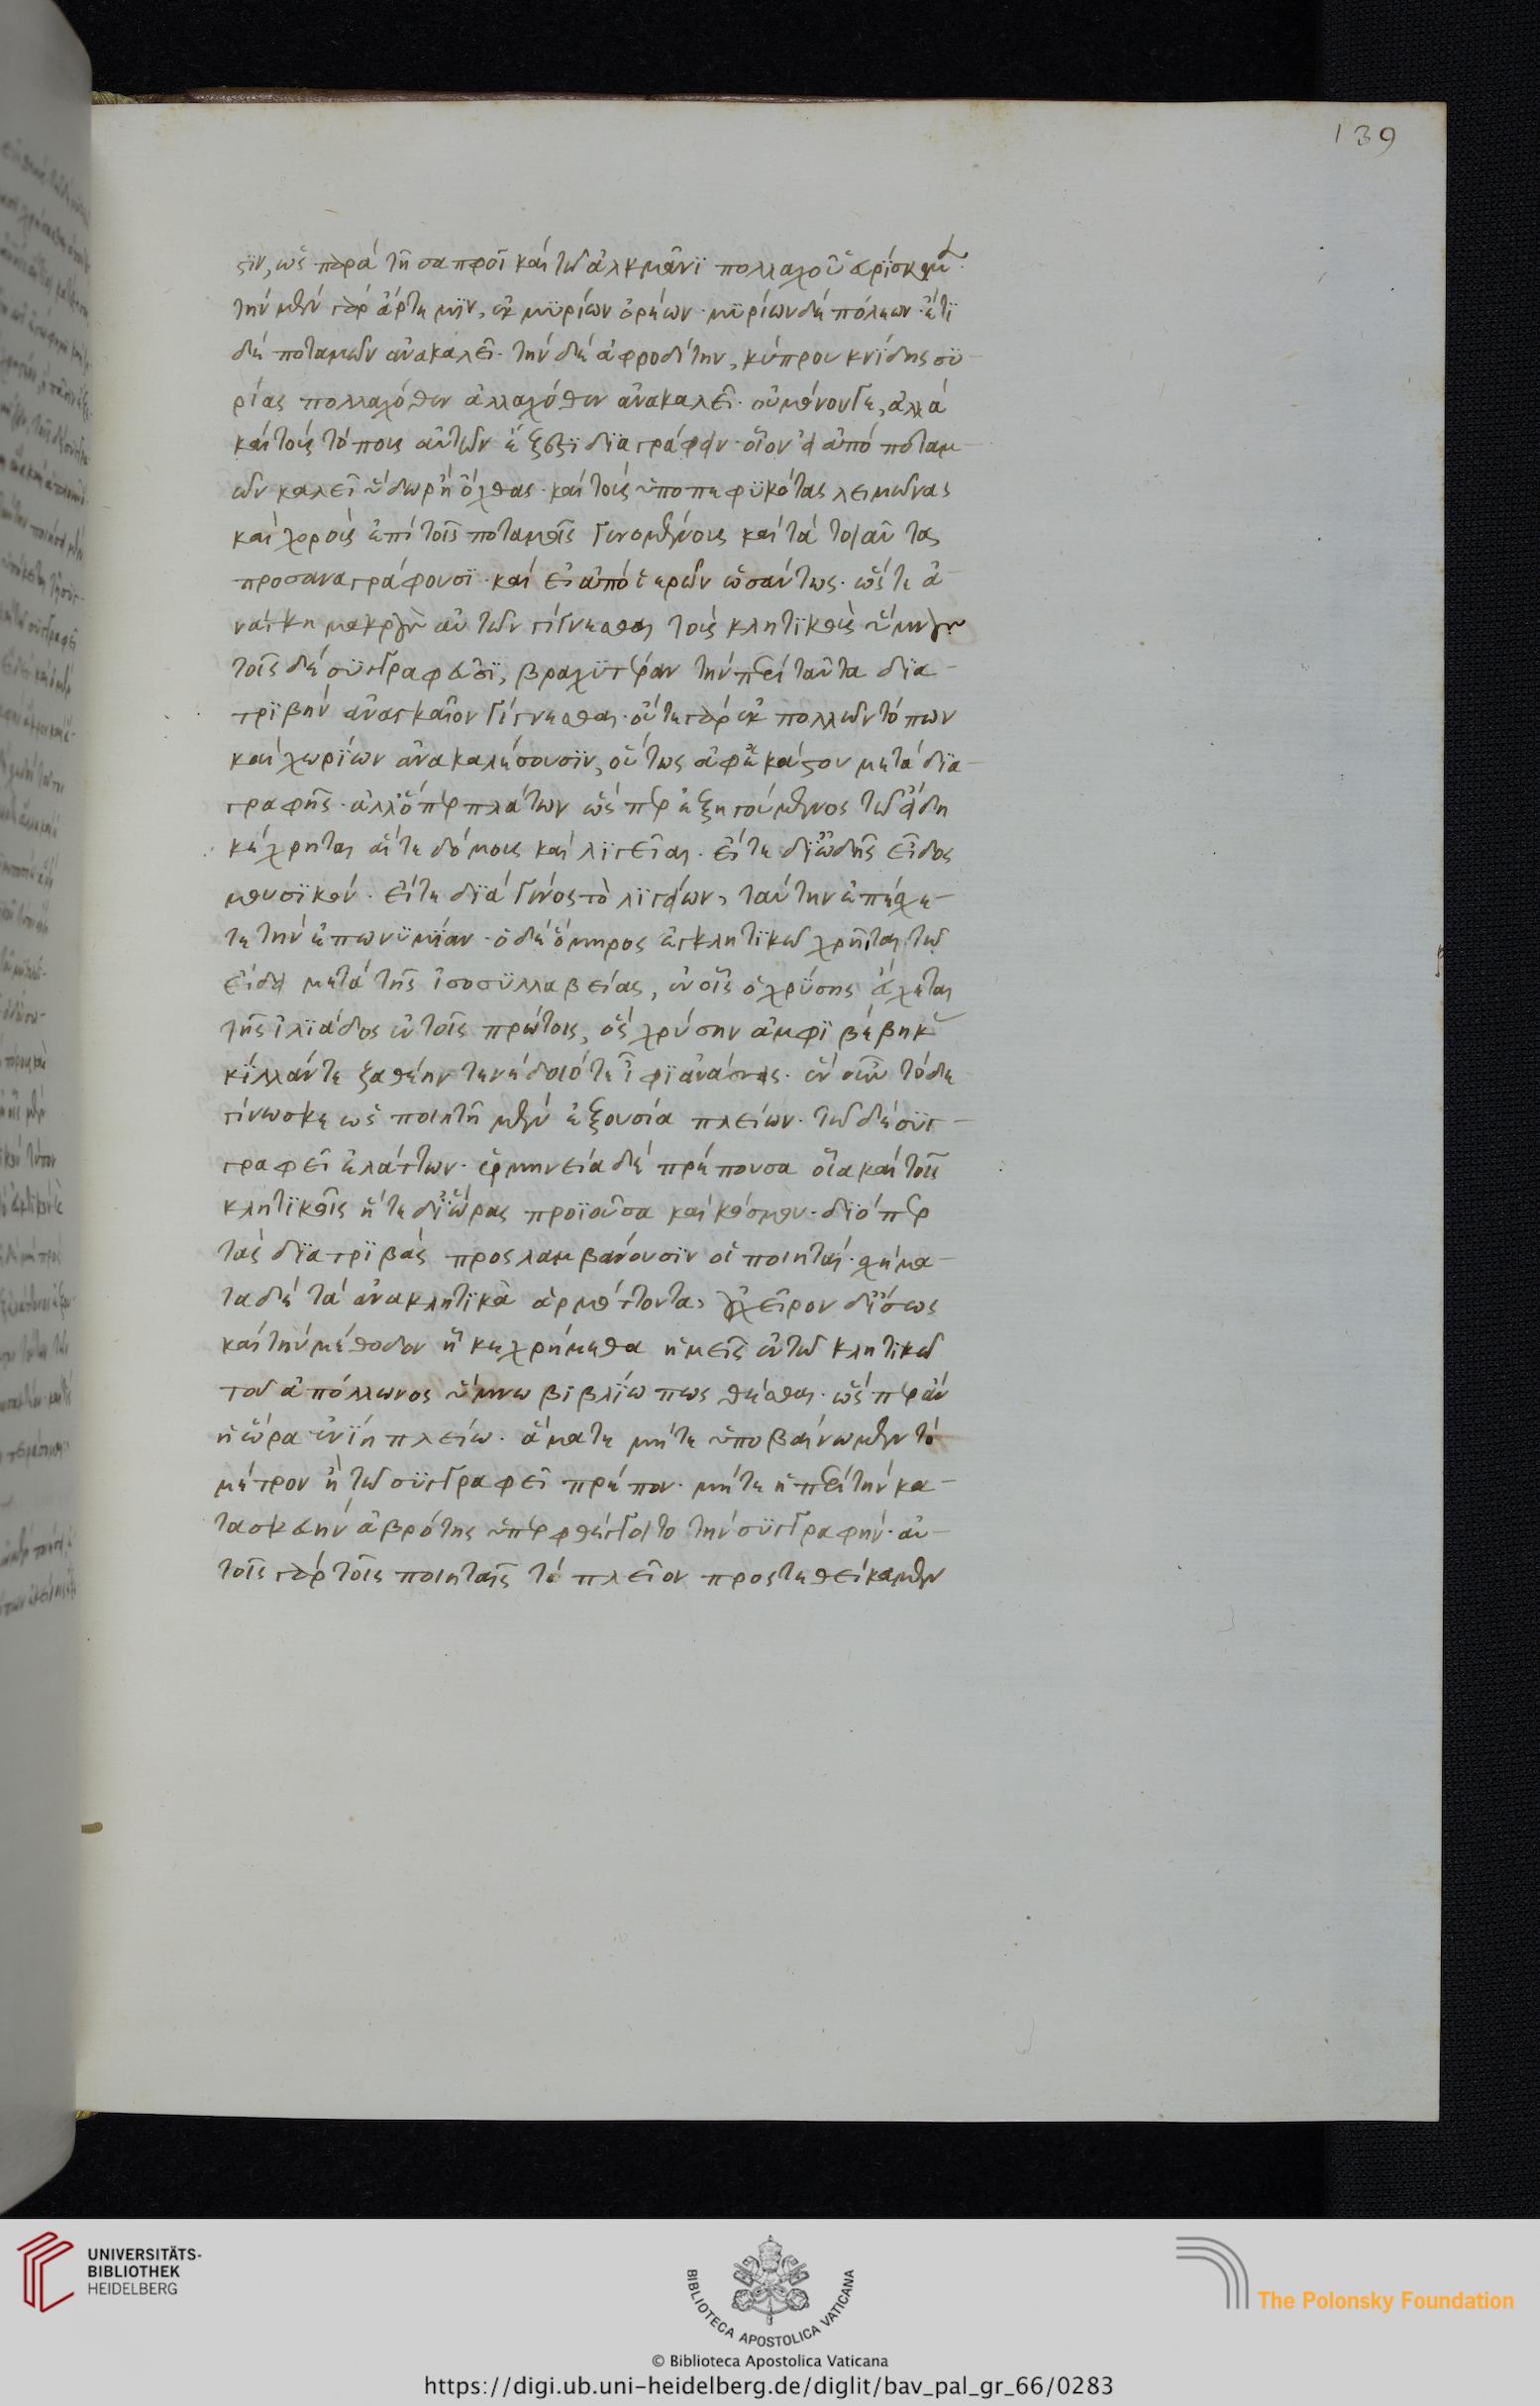 139
σϊν, ὡς παρά τῆ σαπφοῖ καί τῶ ἀλκμᾶνϊ πολλαχοῦ εὑρίσκομεν·
τήν μέν γάρ ἄρτεμϊν, ἐκ μϋρίων ὀρέων· μϋρίων δέ πόλεων· ἔτϊ
δέ ποταμῶν ἀνακαλεῖ· τήν δέ ἀφροδίτην, κύπρου κνϊδης σϋ-
ρίας πολλαχόθεν ἀλλαχόθεν ἀνακαλεῖ· οὐ μόνον γε, ἀλλά
καί τούς τόπους αὐτῶν ἔξεστϊ διαγράφειν· οἷον εἰ ἀπό ποταμ-
ῶν καλεῖ ὕδωρ ἢ ὄχθας· καί τούς ὑποπεφϋκότας λειμῶνας
καί χορούς ἐπί τοῖς ποταμοῖς γενομένους καί τά τοιαῦτα
προσαναγράφουσϊ· καί εἰ ἀπό ἱερῶν ὡσαύτως· ὥστε ἀ-
νάγκη μακρούς αὐτῶν γίγνεσθαι τούς κλητϊκούς ὕμνους
τοῖς δέ συγγραφεῦσϊ, βραχϋτέραν τήν περί ταῦτα δϊα-
τρϊβήν ἀναγκαῖον γίγνεσθαι· οὔτε γάρ ἐκ πολλῶν τόπων
καί χωρίων ἀνακαλέσουσϊν, οὔτως ἀφ' ἑκάστου μετά δϊα-
γραφῆς· ἀλλ' ὅπερ πλάτων ὥσπερ ἐξηγούμενος τῶ εἴδη
κέχρηται αἵτε δή μοῦσαι λϊγεῖαι· εἴτε δι' ὠδῆς εἶδος
μουσϊκόν· εἴτε δϊά γένος τὸ λϊγύων, ταύτην ἐπέσχε-
τε τήν ἐπωνϋμίαν· ὁ δέ ὅμηρος ἐγκλητϊκῶ χρῆται τῶ
εἴδει μετά τῆς ἰσοσϋλλαβείας, ἐν οἷς ὁ χρύσης εὔχεται
τῆς ἰλιάδος ἐν τοῖς πρώτοις, ὅς χρύσην ἀμφϊβέβηκας
κϊλλάν τε ζαθέην τενέδοιό τε ἶφϊ ἀνάσσεις· ἐν οὖν τόδε
γίνωσκε ὡς ποιητῆ μέν ἐξουσία πλείων· τῶ δέ σϋγ-
γραφεῖ ἐλάττων· ἑρμηνεία δέ πρέπουσα οἵα καί τοῖς
κλητϊκοῖς ἥ τε δι' ὥρας προϊοῦσα καί κόσμου· δϊόπερ
τάς δϊατρϊβάς προσλαμβάνουσϊν οἱ ποιηταί· σχήμα-
τα δέ τά ἀνακλητϊκὰ ἁρμόττοντα, χεῖρον δ' ἴσως
καί τήν μέθοδον ἧ κεχρήμεθα ἡμεῖς ἐν τῶ κλητϊκῶ
τοῦ ἀπόλλωνος ὕμνω βϊβλίω πως θέσθαι· ὥσπερ ἄν
ἡ ὥρα ἐνϊῆ πλείω· ἅμα τε μήτε ὑποβαίνωμεν τό
μέτρον ἢ τῶ σϋγγραφεῖ πρέπον· μήτε ἡ περί τήν κα-
τασκευήν ἁβρότης ὑπερφθέγγοιτο τήν σϋγγραφήν· αὐ-
τοῖς γάρ τοῖς ποιηταῖς τό πλεῖον προστεθείκαμεν
UNIVERSITÄTS-
BIBLIOTHEK
HEIDELBERG
BIBLIOTECA APOSTOLICA VATICANA
The Polonsky Foundation
© Biblioteca Apostolica Vaticana
https://digi.ub.uni-heidelberg.de/diglit/bav_pal_gr_66/0283